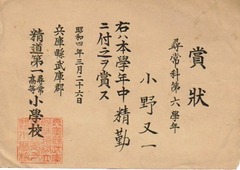 賞狀
尋常科第六學年
小野又一
右ハ本學年中精勤
ニ付之ヲ賞ス
昭和四年三月二十六日
兵庫縣武庫郡
精道第二尋常高等小學校